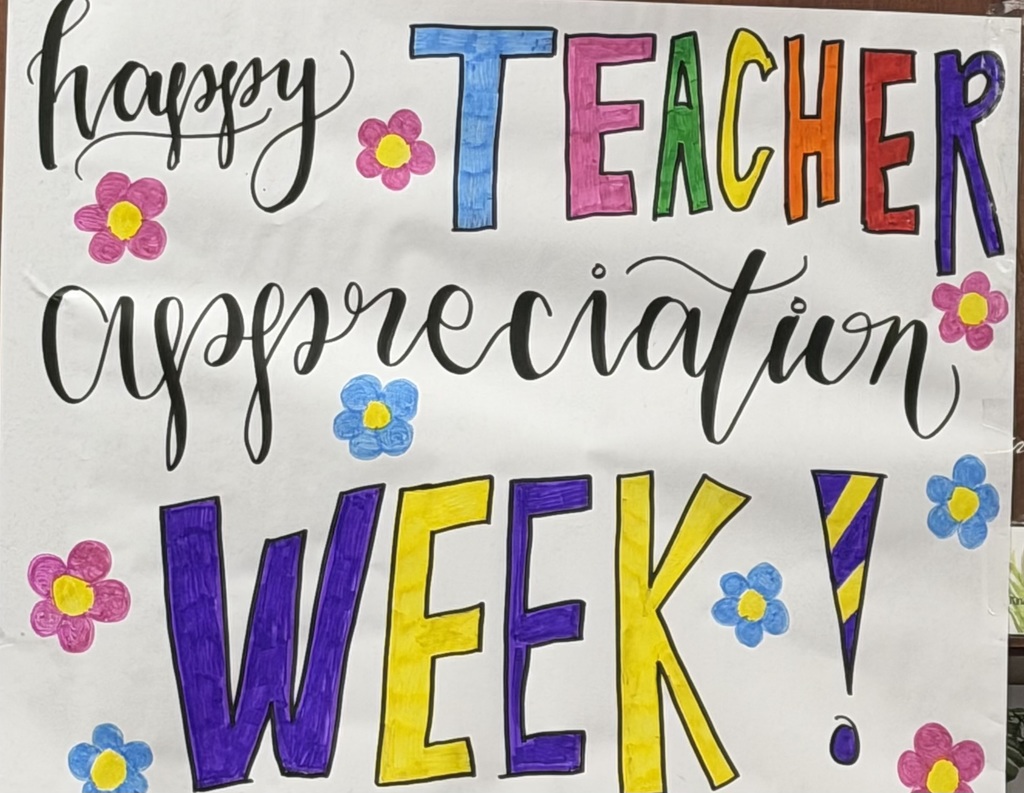 happy TEACHER
appreciation
WEEK!